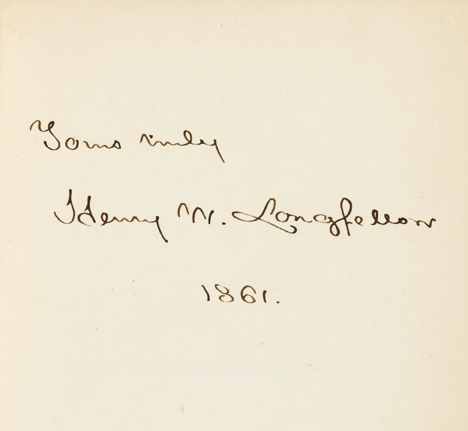 Yours truly
Henry W. Longfellow
1861.